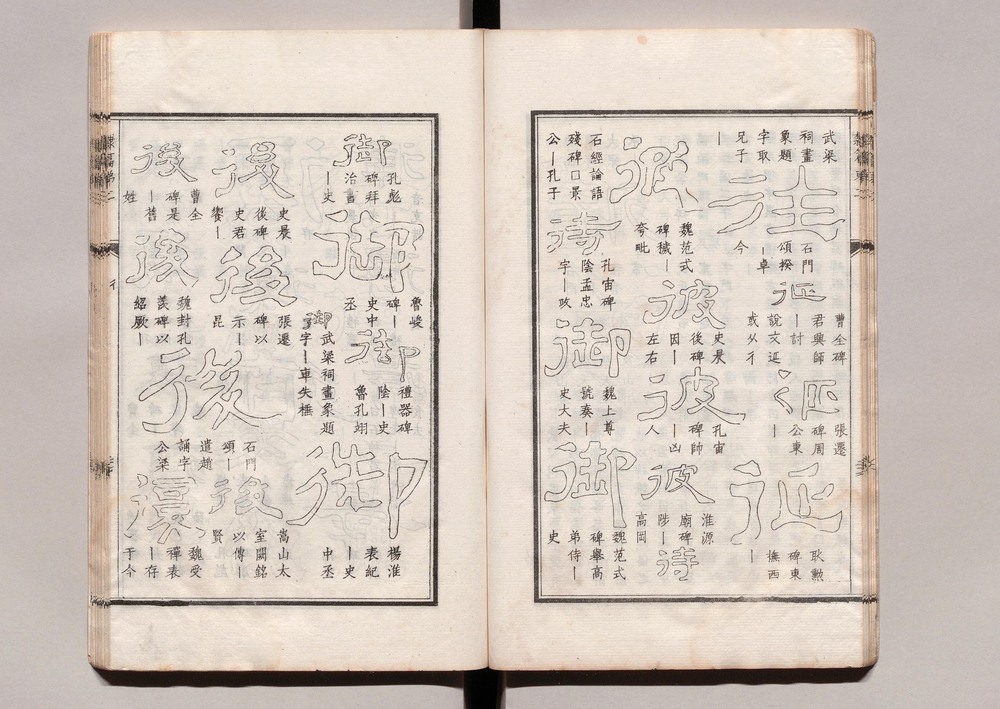 武梁
祠畫
象題
字取
兄子
｜
往
石門
頌揆
｜卓
今
征
曹全碑
君興師
｜討
說文延
或从彳
征
張遷
碑周
公東
｜
征
耿勳
碑東
撫西
｜
彼
魏范式
碑穢｜
夸毗
彼
史晨
後碑
因｜
左右
彼
孔宙
碑帥
｜凶
人
彼
淮源
廟碑
陟｜
高岡
待
石經論語
殘碑口景
公｜孔子
待
孔宙碑
陰孟忠
字｜政
御
魏上尊
號奏｜
史大夫
御
魏范式
碑舉高
弟侍｜
史
御
孔彪
碑拜
治書
｜史
御
魯峻
碑｜
史中
丞
御
禮器碑
陰｜史
魯孔翊
御
武梁祠畫象題
字｜車失棰
御
楊淮
表紀
｜史
中丞
後
史晨
後碑
史君
饗｜
後
張遷
碑以
示｜
昆
後
石門
頌｜
遣趙
誦字
公梁
後
嵩山太
室闕銘
以傳｜
賢
後
曹全
碑是
｜舊
姓
後
魏封孔
羨碑以
紹厥｜
還
魏受
禪表
｜存
于今